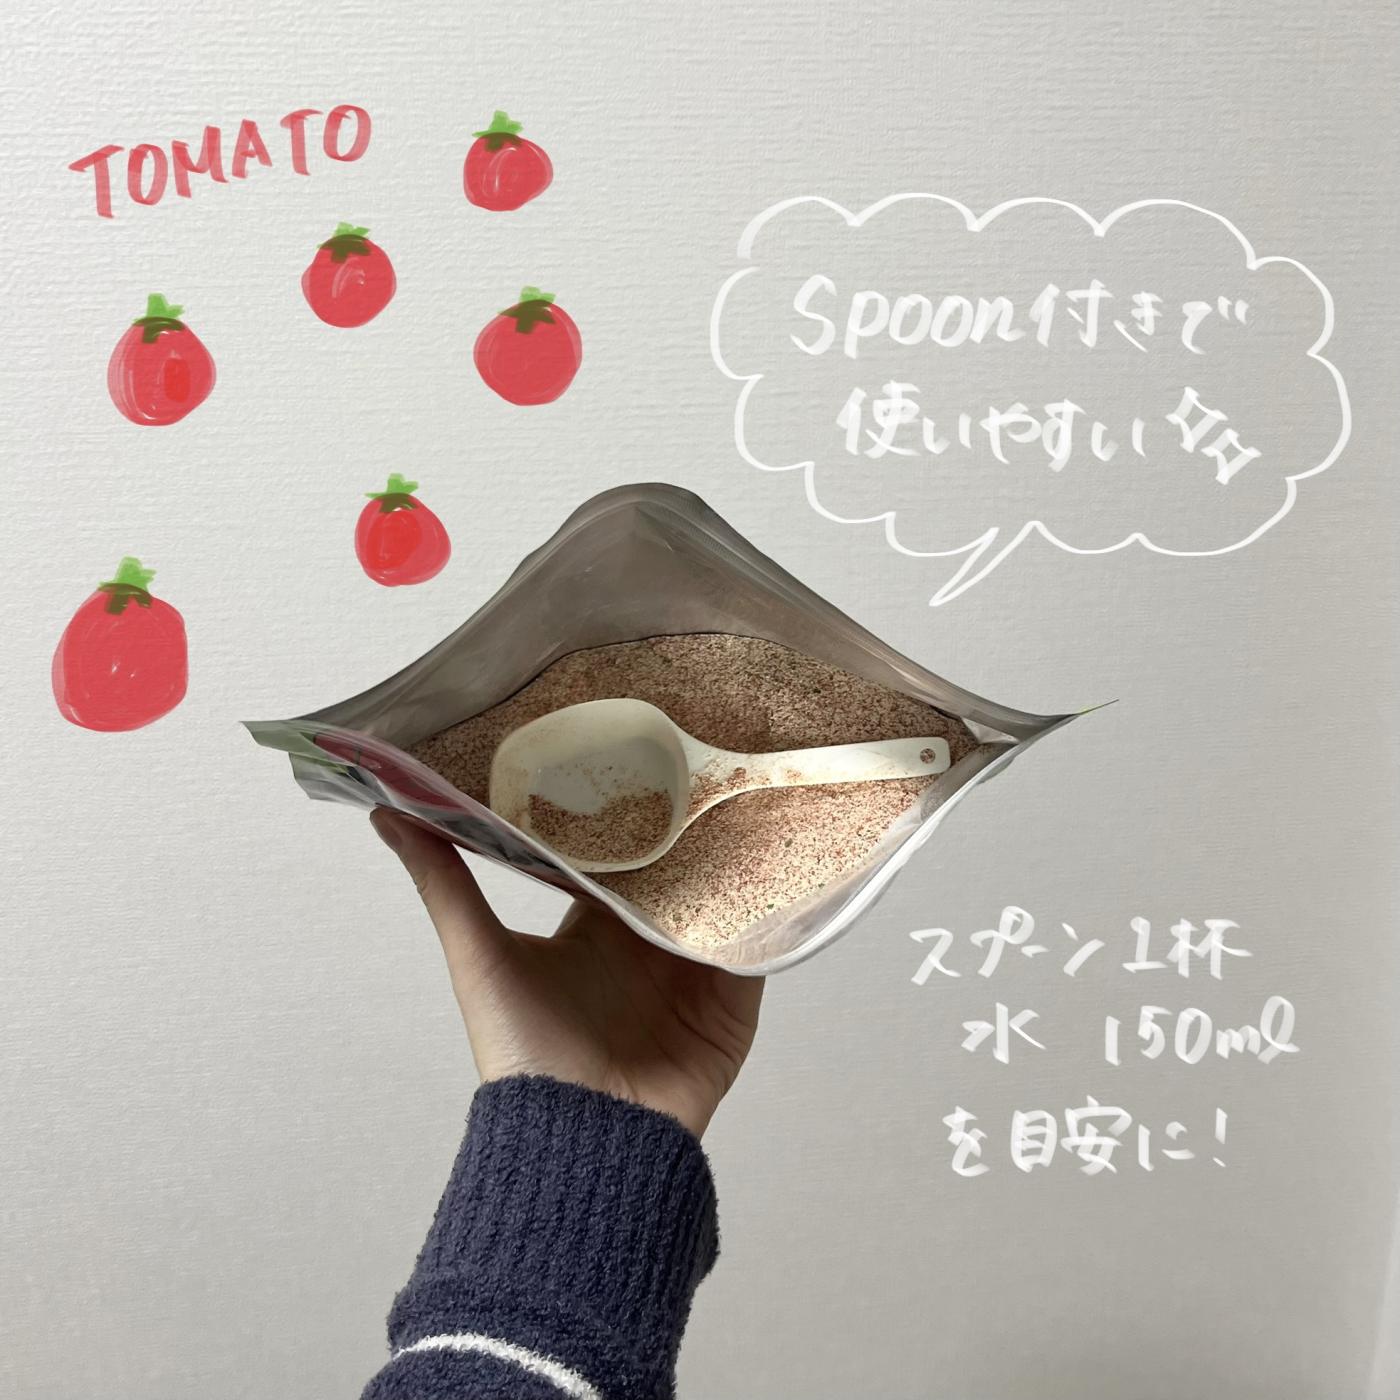 TOMATO
Spoon付きで
使いやすい
スプーン1杯
水 150ml
を目安に!